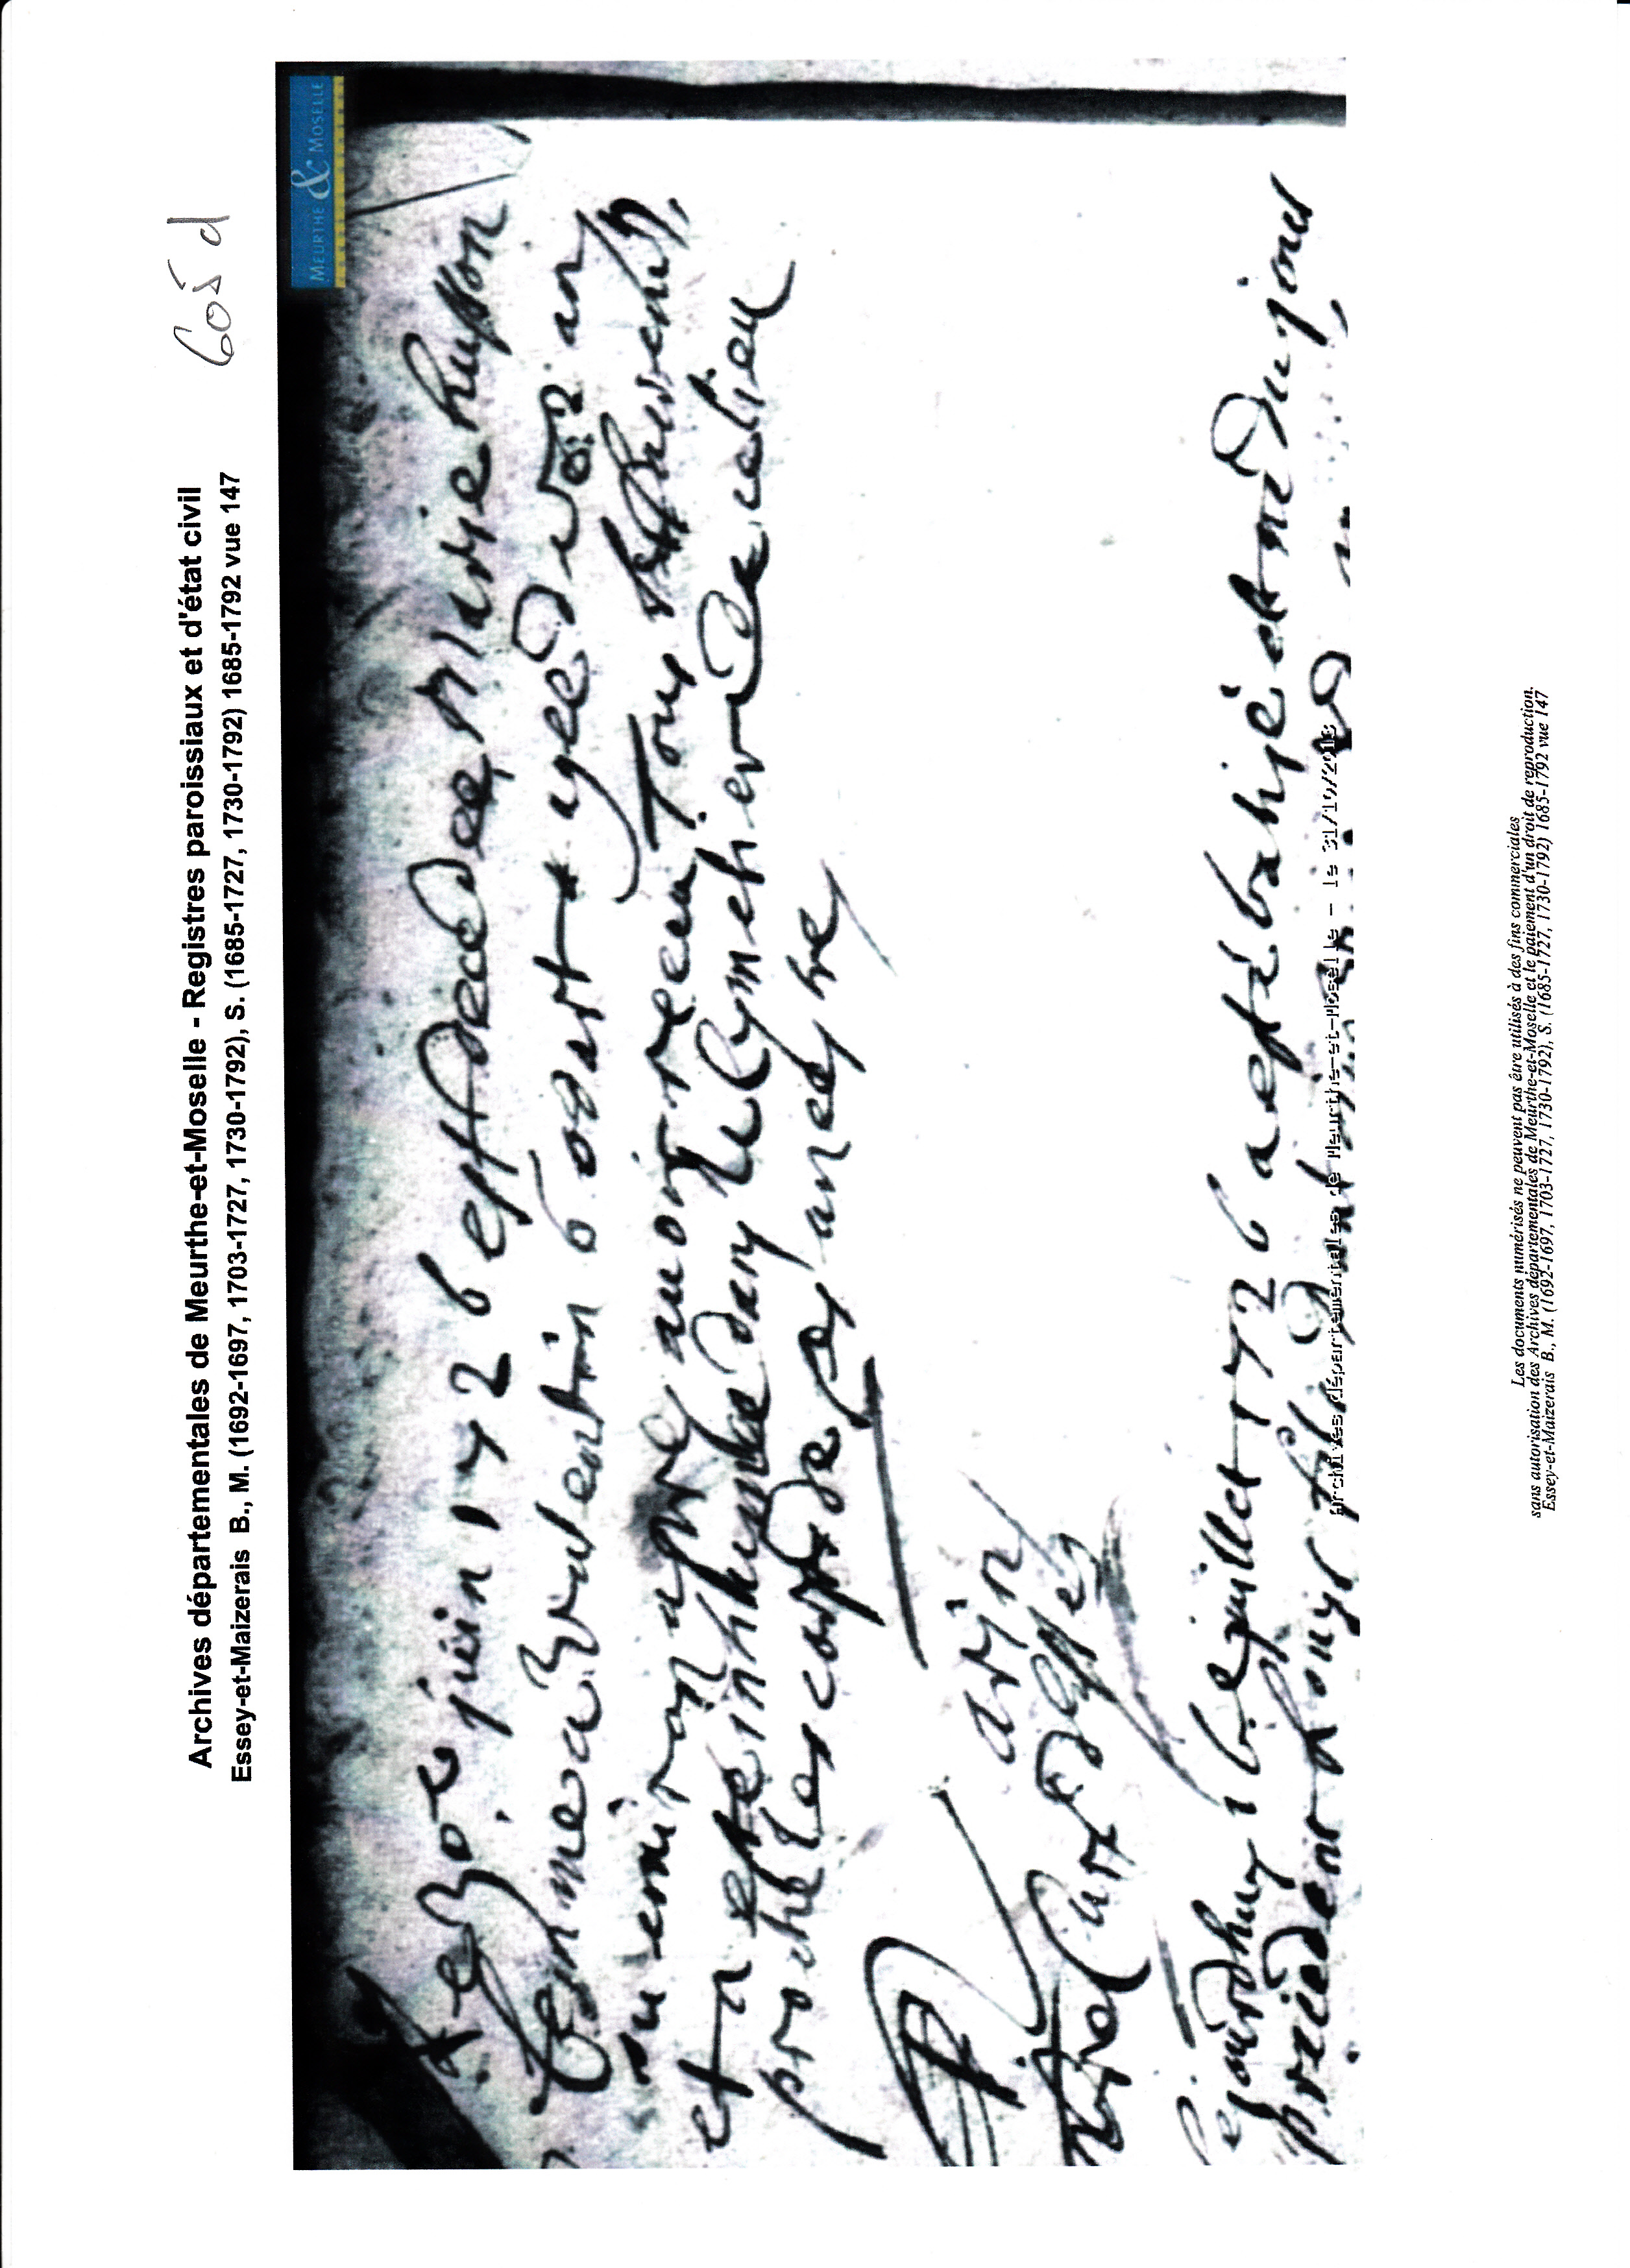 Archives départementales de Meurthe-et-Moselle - Registres paroissiaux et d'état civil
Essey-et-Maizerais B., M. (1692-1697, 1703-1727, 1730-1792), S. (1685-1727, 1730-1792) 1685-1792 vue 147
605 d
MEURTHE & MOSELLE
le 30e juin 1726 est decedee Marie husson
femme a valentin agee de an
environ apre avoir receu Tous
et a este inhumée dans le Cymetiere de ce lieu
proche les corps de ses ancestre
Curé d'Essey
Ce jourdhuy 16e juillet 1726 a esté batisé et né du jour
précédent Louys fils
Archives départementales de Meurthe-et-Moselle - le 31/10/2013
Les documents numérisés ne peuvent pas être utilisés à des fins commerciales
sans autorisation des Archives départementales de Meurthe-et-Moselle et le paiement d'un droit de reproduction.
Essey-et-Maizerais B., M. (1692-1697, 1703-1727, 1730-1792), S. (1685-1727, 1730-1792) 1685-1792 vue 147